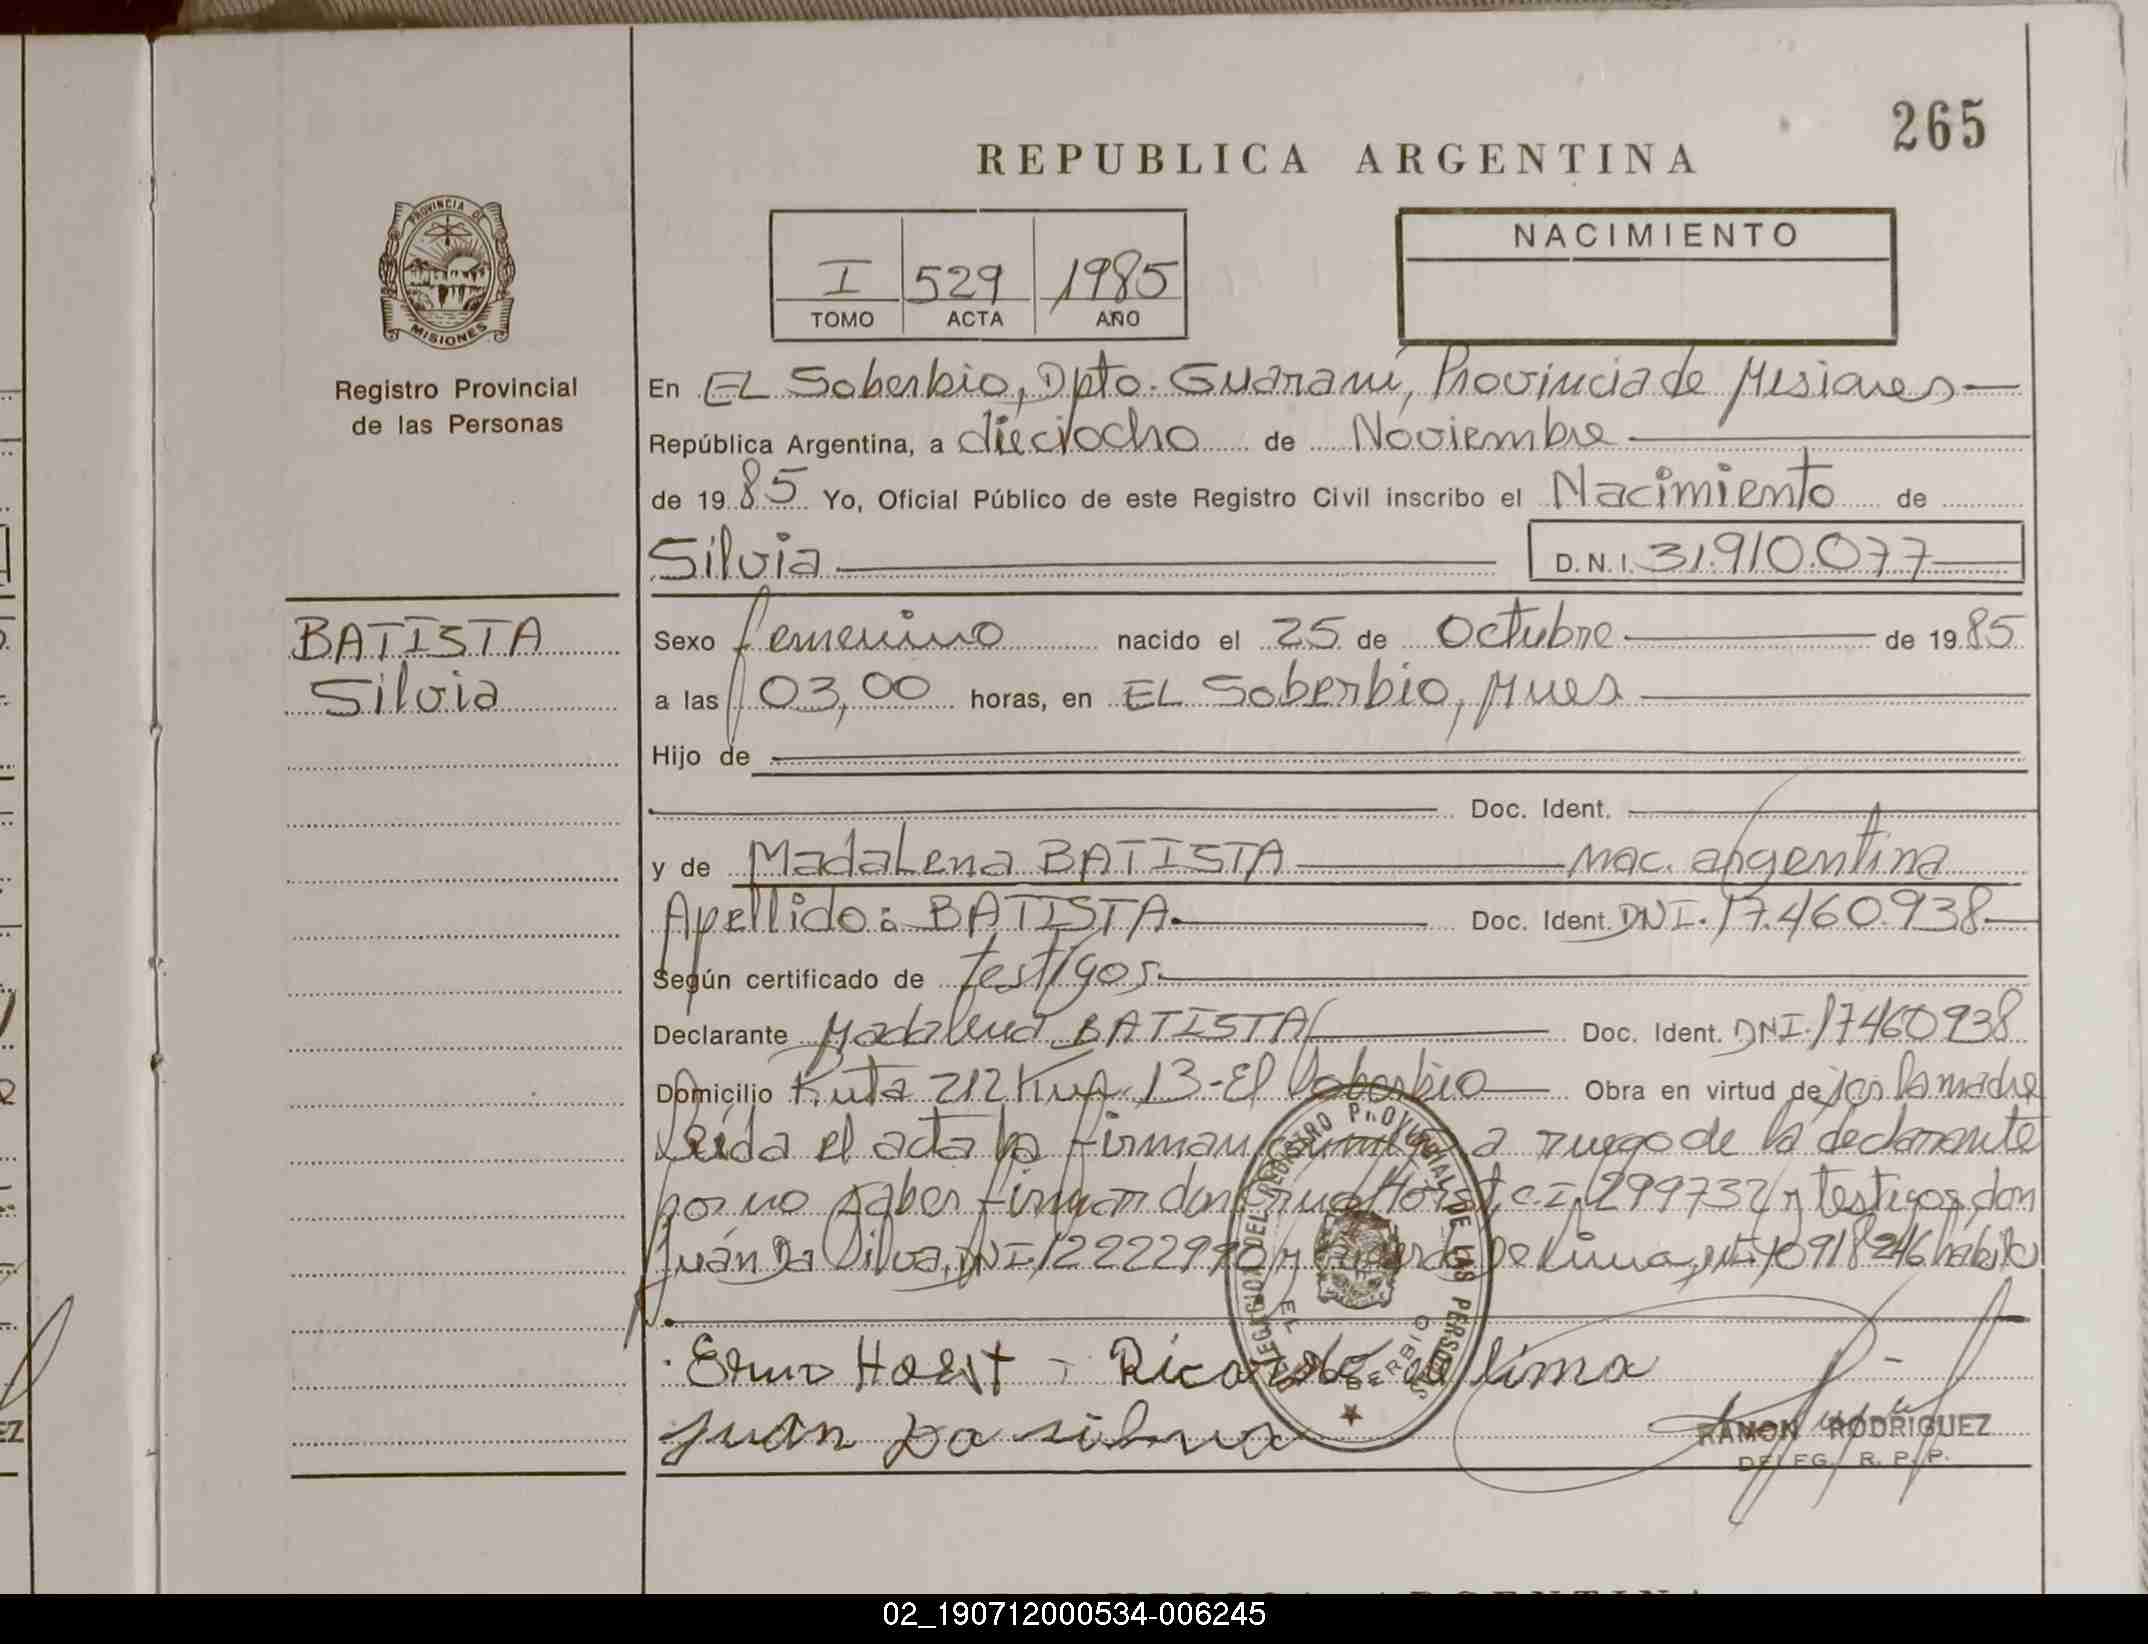 265
REPUBLICA ARGENTINA
PROVINCIA DE
MISIONES
Registro Provincial
de las Personas
I 529 1985
TOMO ACTA AÑO
NACIMIENTO
En EL Soberbio, Dpto. Guaraní, Provincia de Misiones
República Argentina, a dieciocho de Noviembre
de 19 85 Yo, Oficial Público de este Registro Civil inscribo el Nacimiento de
Silvia D.N.I. 31.910.077
BATISTA
Silvia
Sexo femenino nacido el 25 de Octubre de 19 85
a las 03,00 horas, en EL Soberbio, Mnes
Hijo de
Doc. Ident.
y de Madalena BATISTA nac. argentina
Apellido: BATISTA Doc. Ident. DNI. 17.460.938
Según certificado de testigos
Declarante Madalena BATISTA Doc. Ident. DNI. 17460938
Domicilio Ruta 212 Km 13 - El Soberbio Obra en virtud de ser la madre
Leída el acta la firman conmigo a ruego de la declarante
por no saber firmar don Horst, C.I. 299732 y testigos, don
Juán Da Silva, DNI 12222990 y De Lima, 10918246
DELEGACION DEL REGISTRO PROVINCIAL DE LAS PERSONAS
EL SOBERBIO
Erno Horst - Ricardo de lima
Juan Da silva
RAMON RODRIGUEZ
DELEG. R. P. P.
02_190712000534-006245